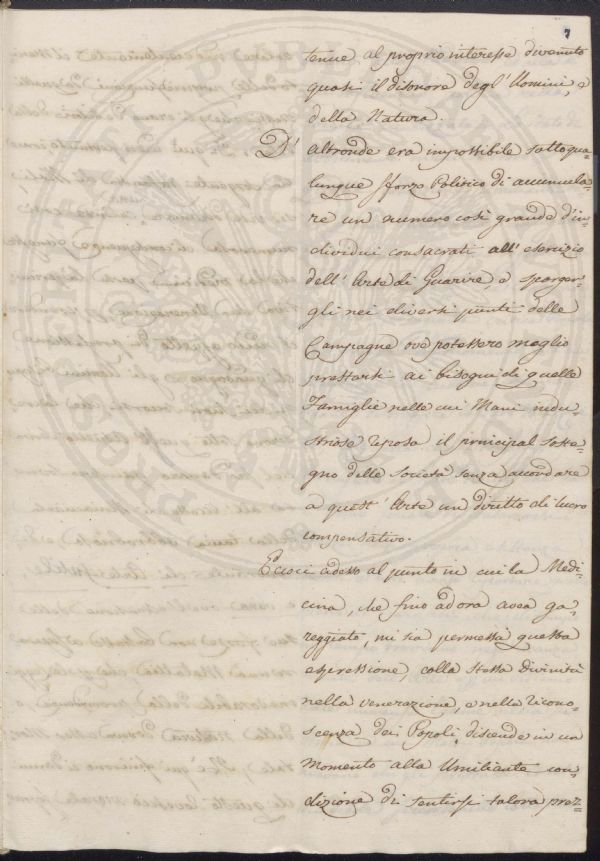 7
tenue al proprio interesse divenuto
quasi il disonore degl' Uomini, e
della Natura.
D' altronde era impossibile sottoqua-
lunque sforzo Politico di accumula-
re un numero così grande d'in-
dividui consacrati all' esercizio
dell' Arte di Guarire e sparger-
gli nei diversi punti delle
Campagne ove potessero meglio
prestarsi ai bisogni di quelle
Famiglie nelle cui Mani indu-
striose riposa il principal soste-
gno delle società senza accordare
a quest' Arte un diritto di lucro
compensativo.
Eccoci adesso al punto in cui la Medi-
cina, che fino ad ora avea ga-
reggiato, mi sia permessa questa
espressione, colla stessa Divinità
nella venerazione, e nella ricono-
scenza dei Popoli, discende in un
momento alla Umiliante con-
dizione di sentirsi talora prez-